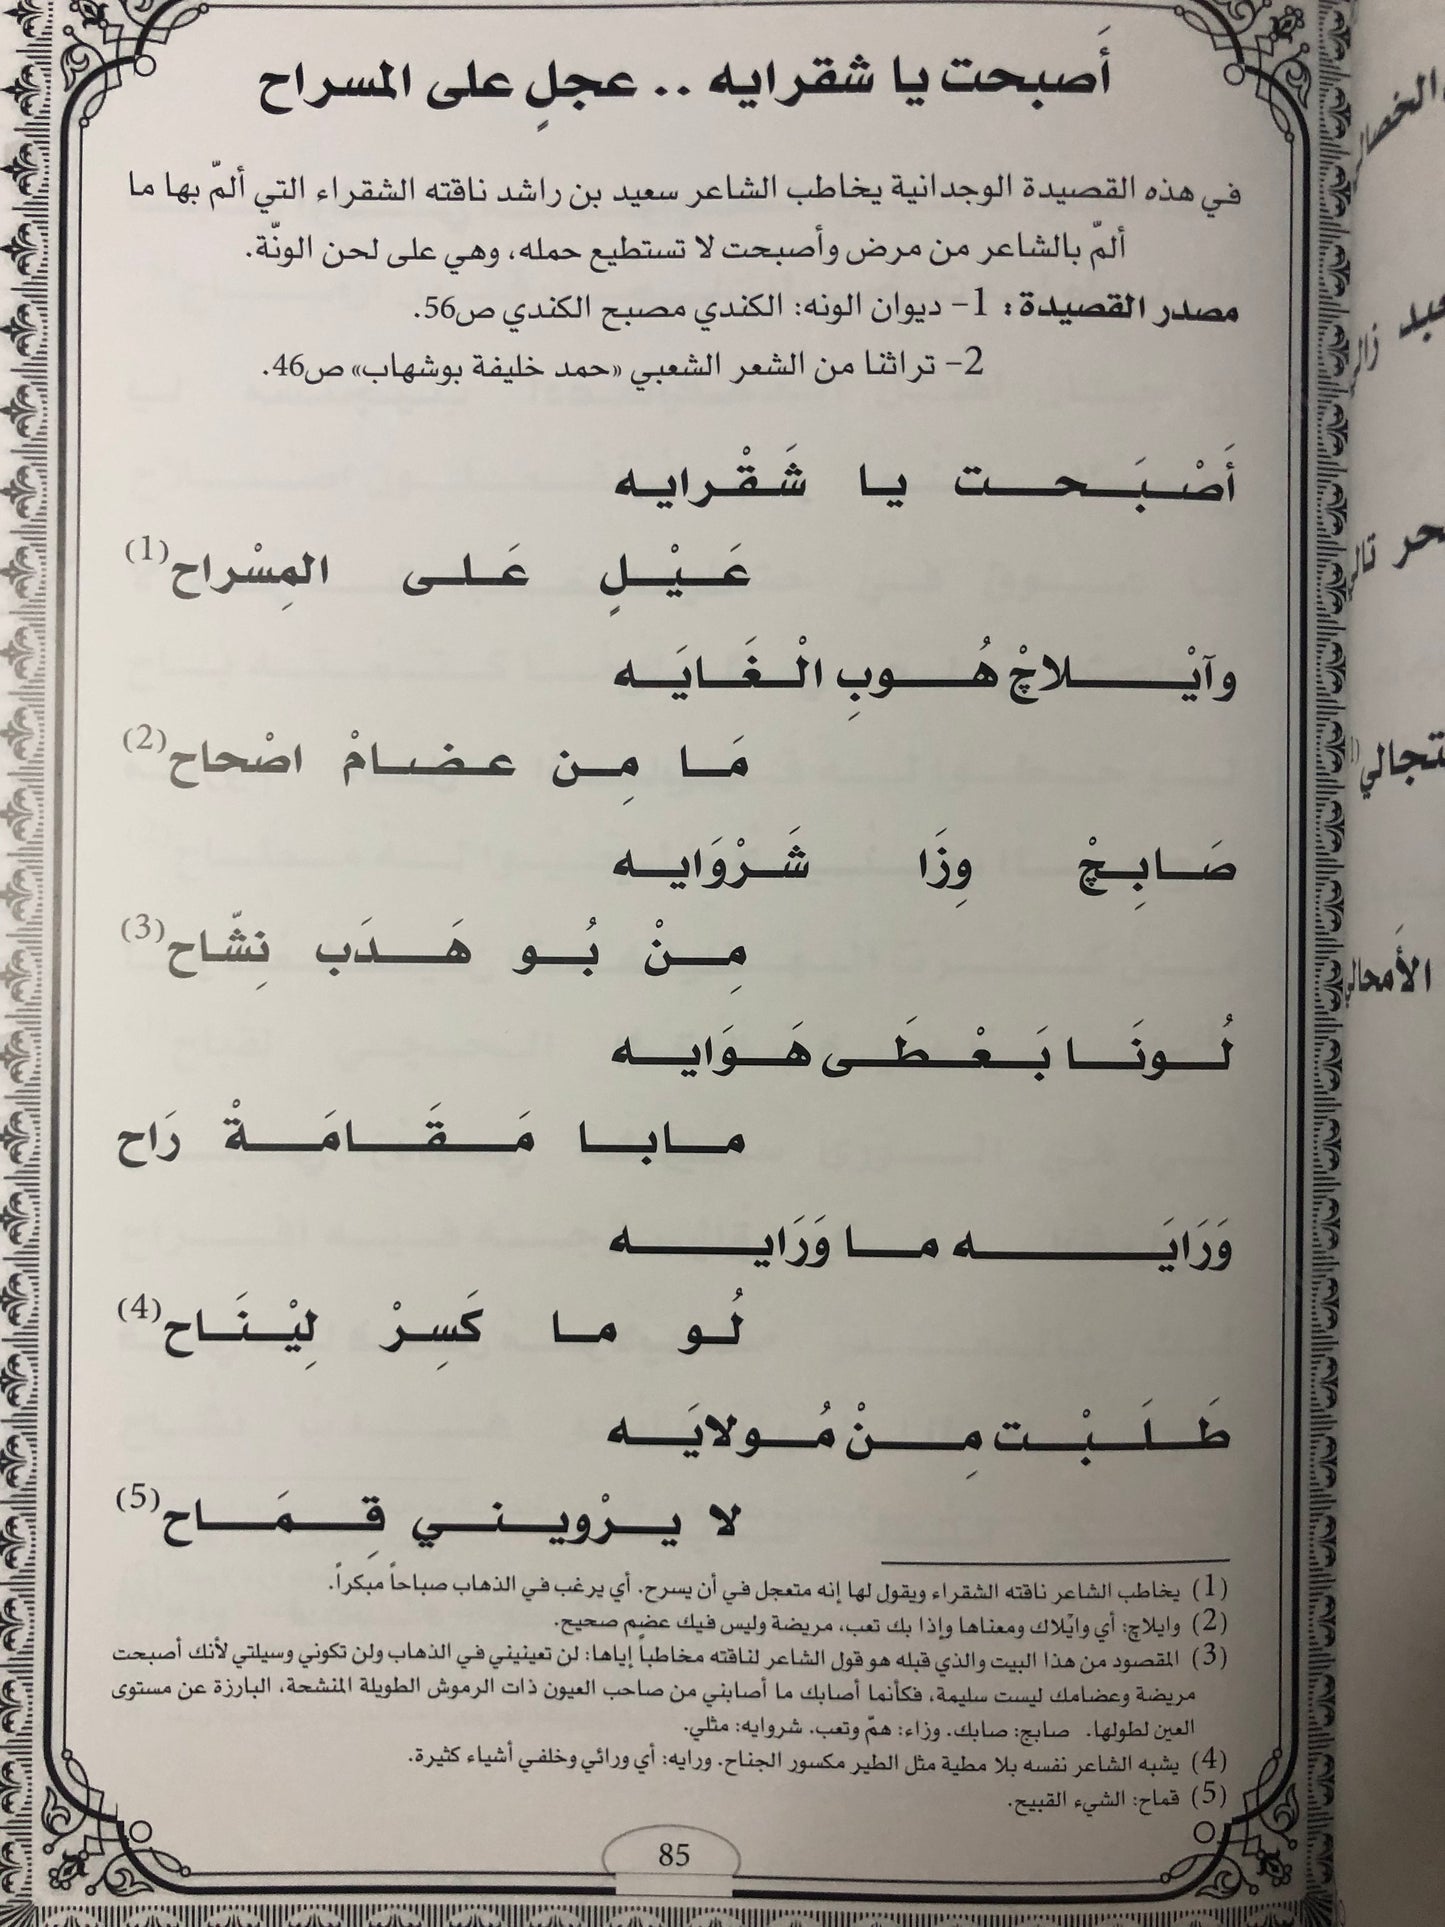 أَصبحت يا شقرايه .. عجلٍ على المسراح
في هذه القصيدة الوجدانية يخاطب الشاعر سعيد بن راشد ناقته الشقراء التي ألمّ بها ما
ألمّ بالشاعر من مرض وأصبحت لا تستطيع حمله، وهي على لحن الونّة.
مصدر القصيدة: 1- ديوان الونه: الكندي مصبح الكندي ص56.
2- تراثنا من الشعر الشعبي «حمد خليفة بوشهاب» ص46.
أَصْبَحت يا شَقْرايه
عَيْلٍ عَلى المِسْراح(1)
وآيْلاچْ هُوبِ الْغَايَه
مَا مِن عضامْ اصْحاح(2)
صَابِچْ وِزَا شَرْوَايه
مِنْ بُو هَدَب نِشّاح(3)
لُونَا بَعْطَى هَوَايه
مابا مَقَامَةْ رَاح
وَرَايَه ما وَرَايه
لُو ما كَسِرْ لِيْنَاح(4)
طَلَبْت مِنْ مُولايَه
لا يرْويني قِمَاح(5)
(1) يخاطب الشاعر ناقته الشقراء ويقول لها إنه متعجل في أن يسرح. أي يرغب في الذهاب صباحاً مبكراً.
(2) وايلاچ: أي وايْلاك ومعناها وإذا بك تعب، مريضة وليس فيك عضم صحيح.
(3) المقصود من هذا البيت والذي قبله هو قول الشاعر لناقته مخاطباً إياها: لن تعينيني في الذهاب ولن تكوني وسيلتي لأنك أصبحت
مريضة وعضامك ليست سليمة، فكأنما أصابك ما أصابني من صاحب العيون ذات الرموش الطويلة المنشحة، البارزة عن مستوى
العين لطولها. صابچ: صابك. وزاء: همّ وتعب. شروايه: مثلي.
(4) يشبه الشاعر نفسه بلا مطية مثل الطير مكسور الجناح. ورايه: أي ورائي وخلفي أشياء كثيرة.
(5) قماح: الشيء القبيح.
85